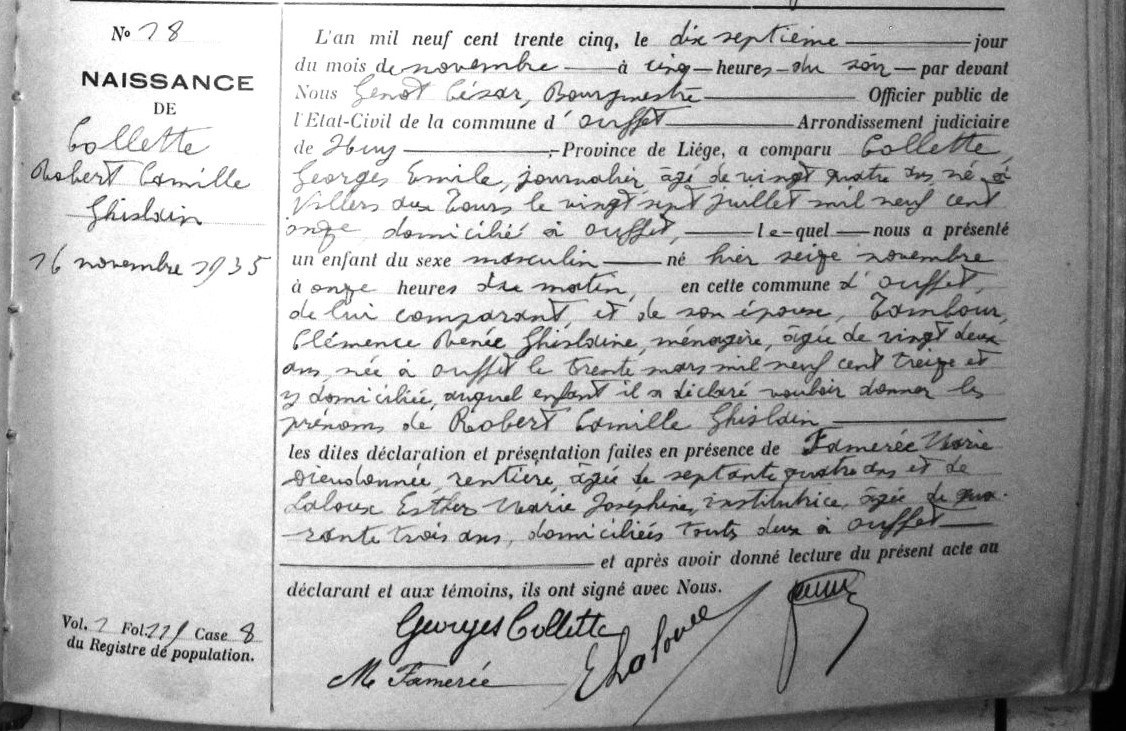 Nº 18
NAISSANCE
DE
Collette
Robert Camille
Ghislain
16 novembre 1935
Vol. 1 Fol. 221 Case 8
du Registre de population.
L'an mil neuf cent trente cinq, le dix septième jour
du mois de novembre à cinq heures du soir par devant
Nous Genot César, Bourgmestre Officier public de
l'Etat-Civil de la commune d'ouffet Arrondissement judiciaire
de Huy Province de Liége, a comparu Collette,
Georges Emile, journalier, âgé de vingt quatre ans né à
Villers aux Tours le vingt sept juillet mil neuf cent
onze, domicilié à ouffet, le-quel nous a présenté
un enfant du sexe masculin né hier seize novembre
à onze heures du matin, en cette commune d'ouffet,
de lui comparant, et de son épouse, Tambour,
Clémence Renée Ghislaine, ménagère, âgée de vingt deux
ans, née à ouffet le trente mars mil neuf cent treize et
y domiciliée, auquel enfant il a déclaré vouloir donner les
prénoms de Robert Camille Ghislain
les dites déclaration et présentation faites en présence de Famerée Marie
Dieudonnée, rentière, âgée de septante quatre ans et de
Laloux Esther Marie Joséphine, institutrice, âgée de qua-
rante trois ans, domiciliés touts deux à ouffet
et après avoir donné lecture du présent acte au
déclarant et aux témoins, ils ont signé avec Nous.
Georges Collette
M Famerée